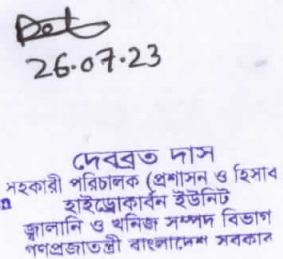 26.07.23
দেবব্রত দাস
সহকারী পরিচালক (প্রশাসন ও হিসাব
হাইড্রোকার্বন ইউনিট
জ্বালানি ও খনিজ সম্পদ বিভাগ
গণপ্রজাতন্ত্রী বাংলাদেশ সরকার